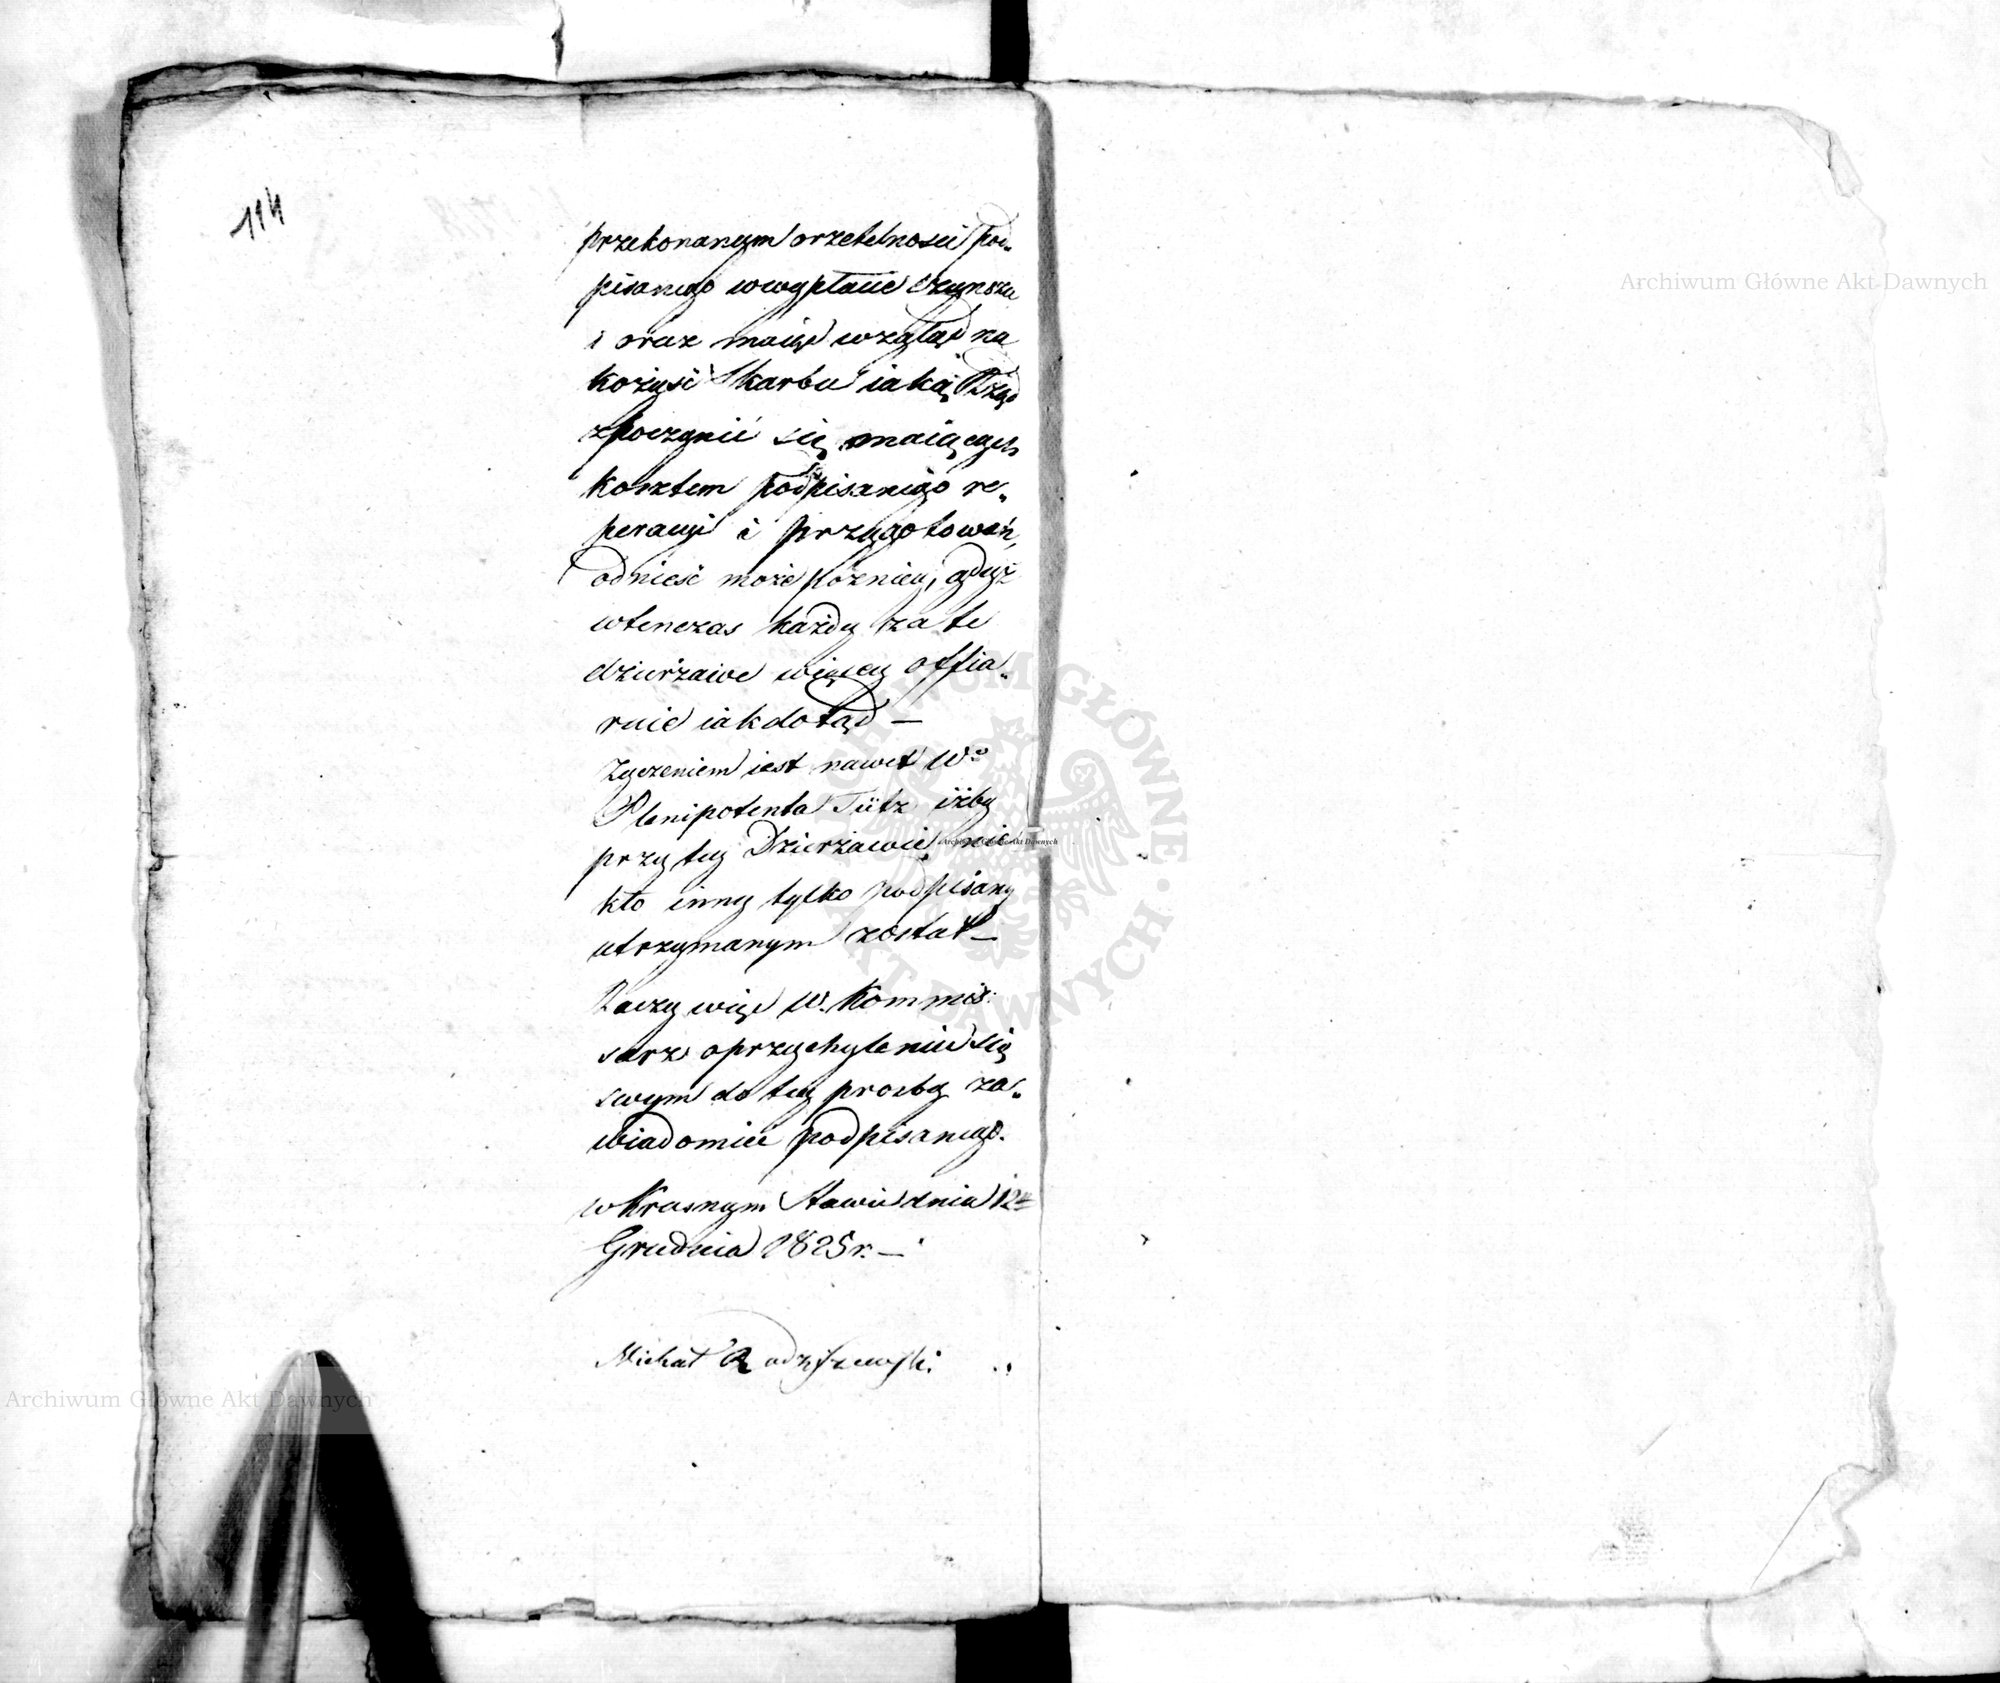 114
przekonanym orzetelności pod„
pisanego wwypłacie Czynszu
i oraz maiąc wzgląd na
kożyść Skarbu iaką Rząd
zpoczynić się maiących
kosztem podpisanego re„
peracyi i przygotowań,
odnieść może pożniey, gdyż
wtenczas każdy za te
dzierżawe więcey offia„
ruie iak dotąd —
Życzeniem iest nawet Wo
Plenipotenta Tütz iżby
przy tey Dzierżawie nie
kto inny tylko podpisany
utrzymanym został —
Raczy więc W. Kommis:
sarz oprzychyleniu się
swym do tey prozby za„
wiadomić podpisanego.
w Krasnym Stawie dnia 12
Grudnia 1825 r. —
Michał Radzyszewski
Archiwum Główne Akt Dawnych
Archiwum Główne Akt Dawnych
Archiwum Główne Akt Dawnych
ARCHIWUM GŁÓWNE AKT DAWNYCH